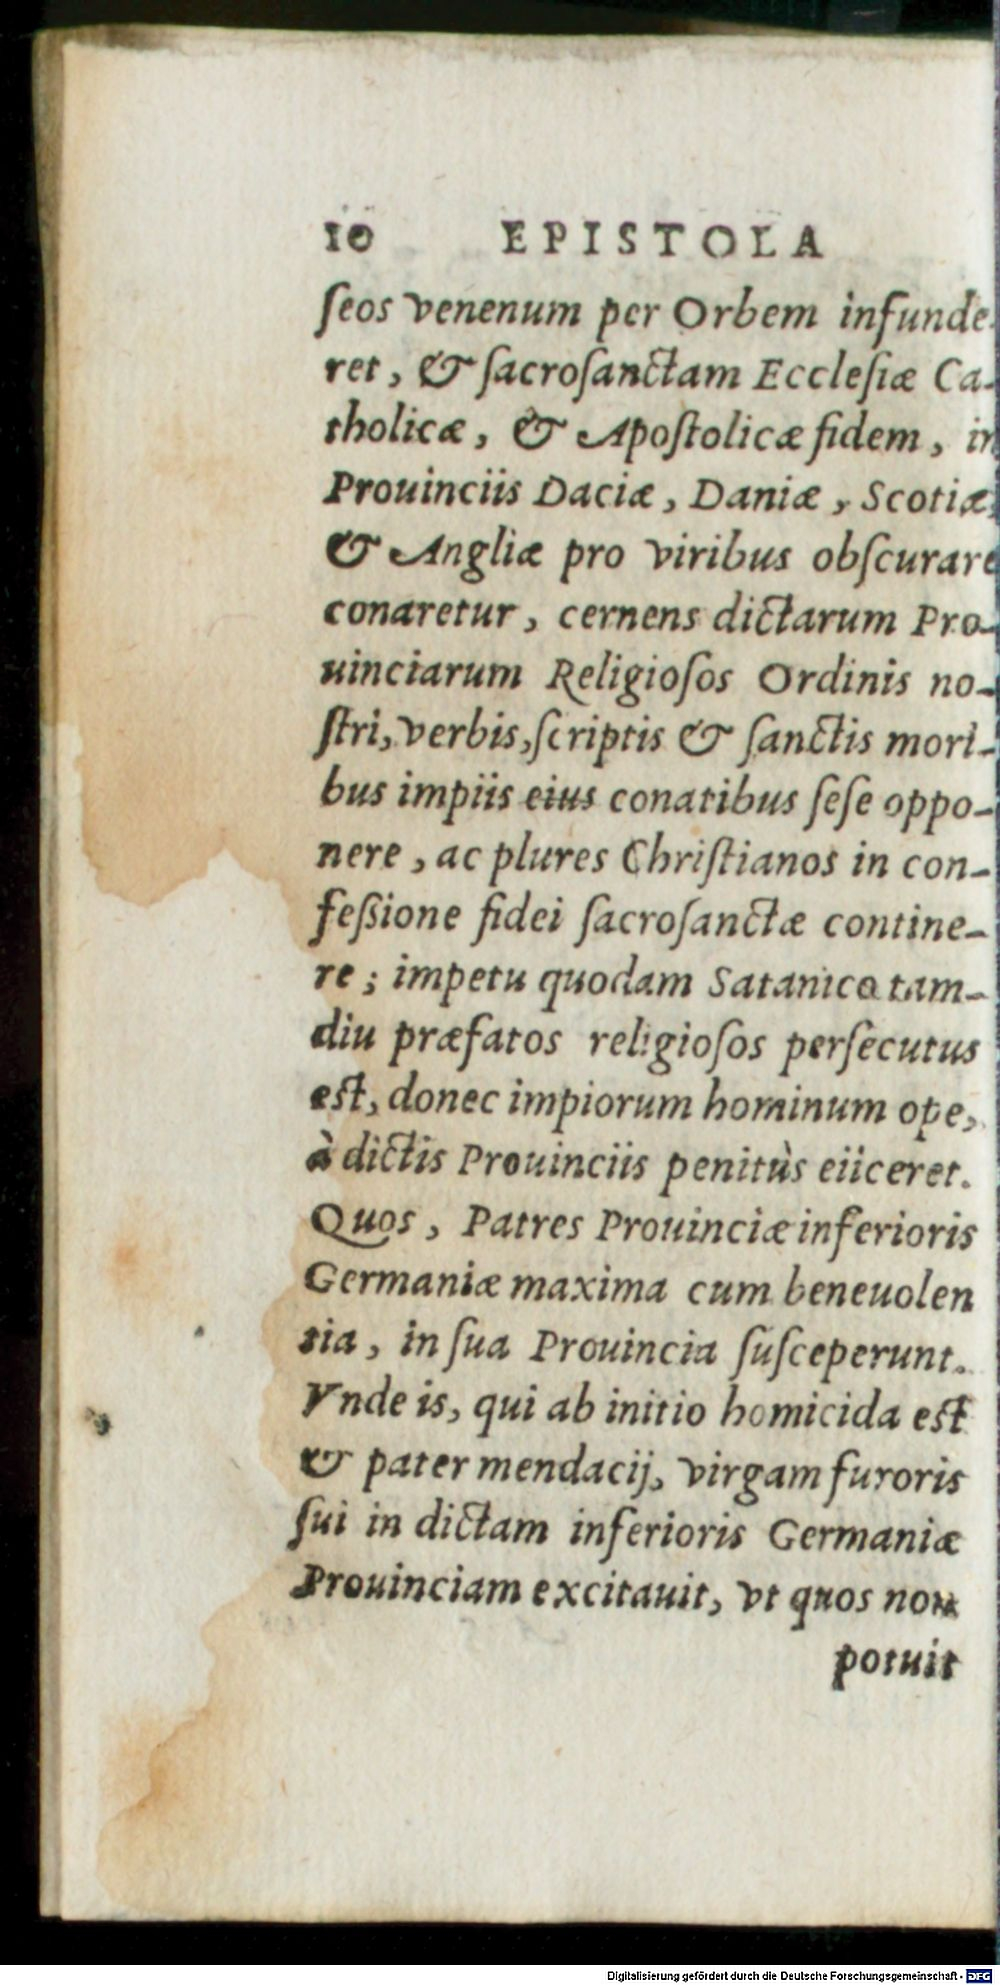 10 EPISTOLA
ſeos venenum per Orbem infunde
ret, & ſacroſanctam Eccleſiæ Ca-
tholicæ, & Apoſtolicæ fidem, in
Prouinciis Daciæ, Daniæ, Scotiæ,
& Angliæ pro viribus obſcurare
conaretur, cernens dictarum Pro-
uinciarum Religioſos Ordinis no-
ſtri, verbis, ſcriptis & ſanctis mori-
bus impiis eius conatibus ſeſe oppo-
nere, ac plures Chriſtianos in con-
feßione fidei ſacroſanctæ contine-
re; impetu quodam Satanico tam-
diu præfatos religioſos perſecutus
eſt, donec impiorum hominum ope,
à dictis Prouinciis penitùs eiiceret.
Quos, Patres Prouinciæ inferioris
Germaniæ maxima cum beneuolen
tia, in ſua Prouincia ſuſceperunt.
Vnde is, qui ab initio homicida eſt
& pater mendacij, virgam furoris
ſui in dictam inferioris Germaniæ
Prouinciam excitauit, vt quos non
potuit
Digitalisierung gefördert durch die Deutsche Forschungsgemeinschaft - DFG